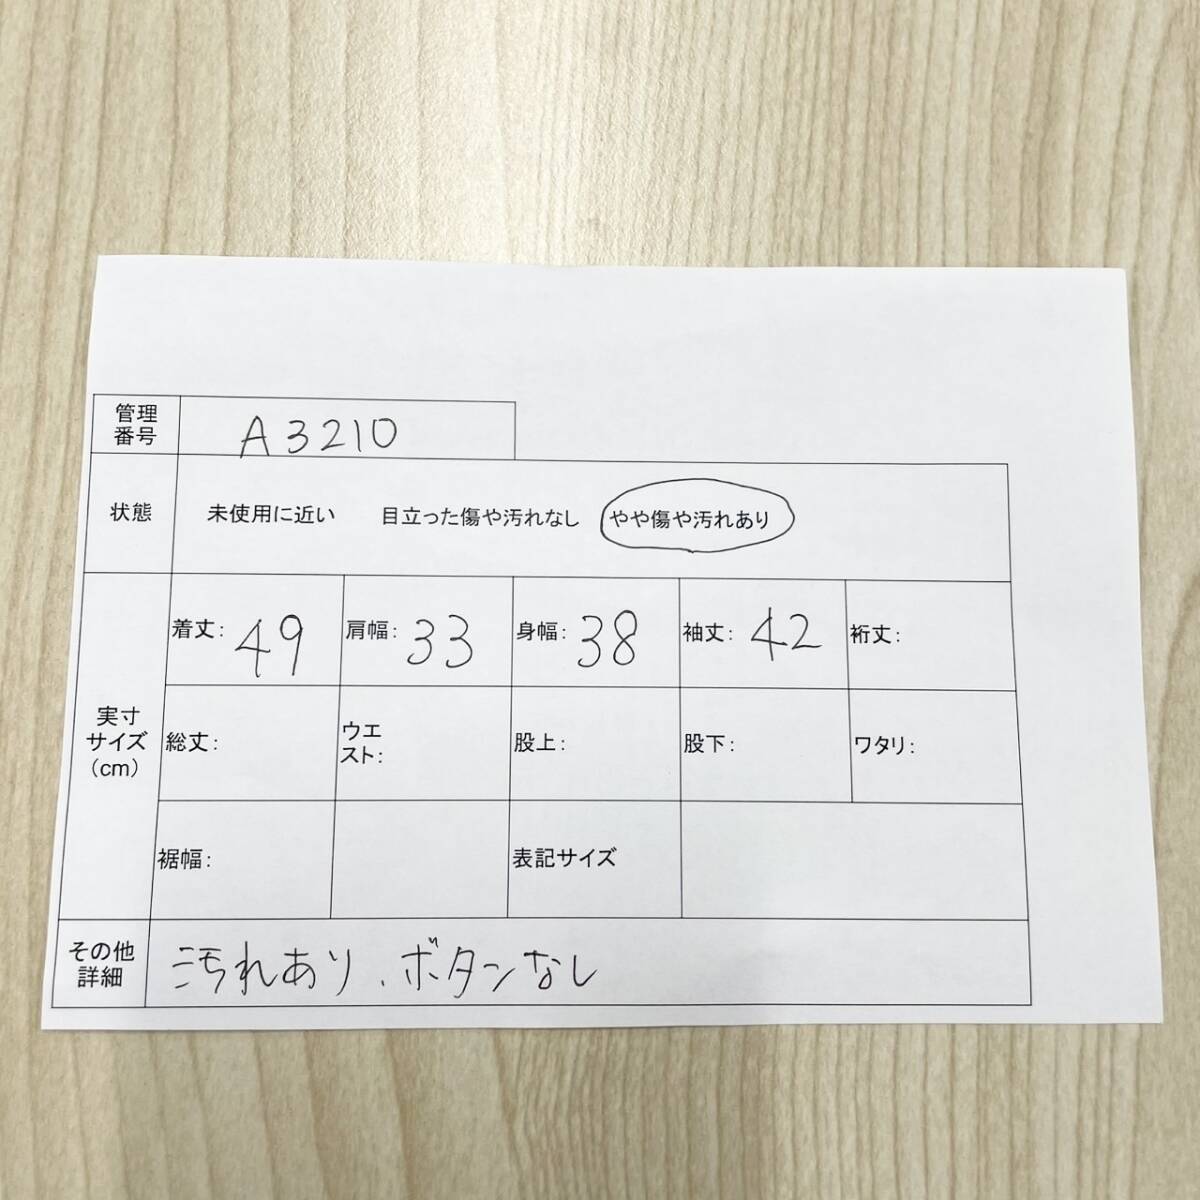 管理
番号
A3210
状態
未使用に近い 目立った傷や汚れなし やや傷や汚れあり
実寸
サイズ
(cm)
着丈: 49 肩幅: 33 身幅: 38 袖丈: 42 裄丈:
総丈: ウエ
スト: 股上: 股下: ワタリ:
裾幅: 表記サイズ
その他
詳細
汚れあり、ボタンなし